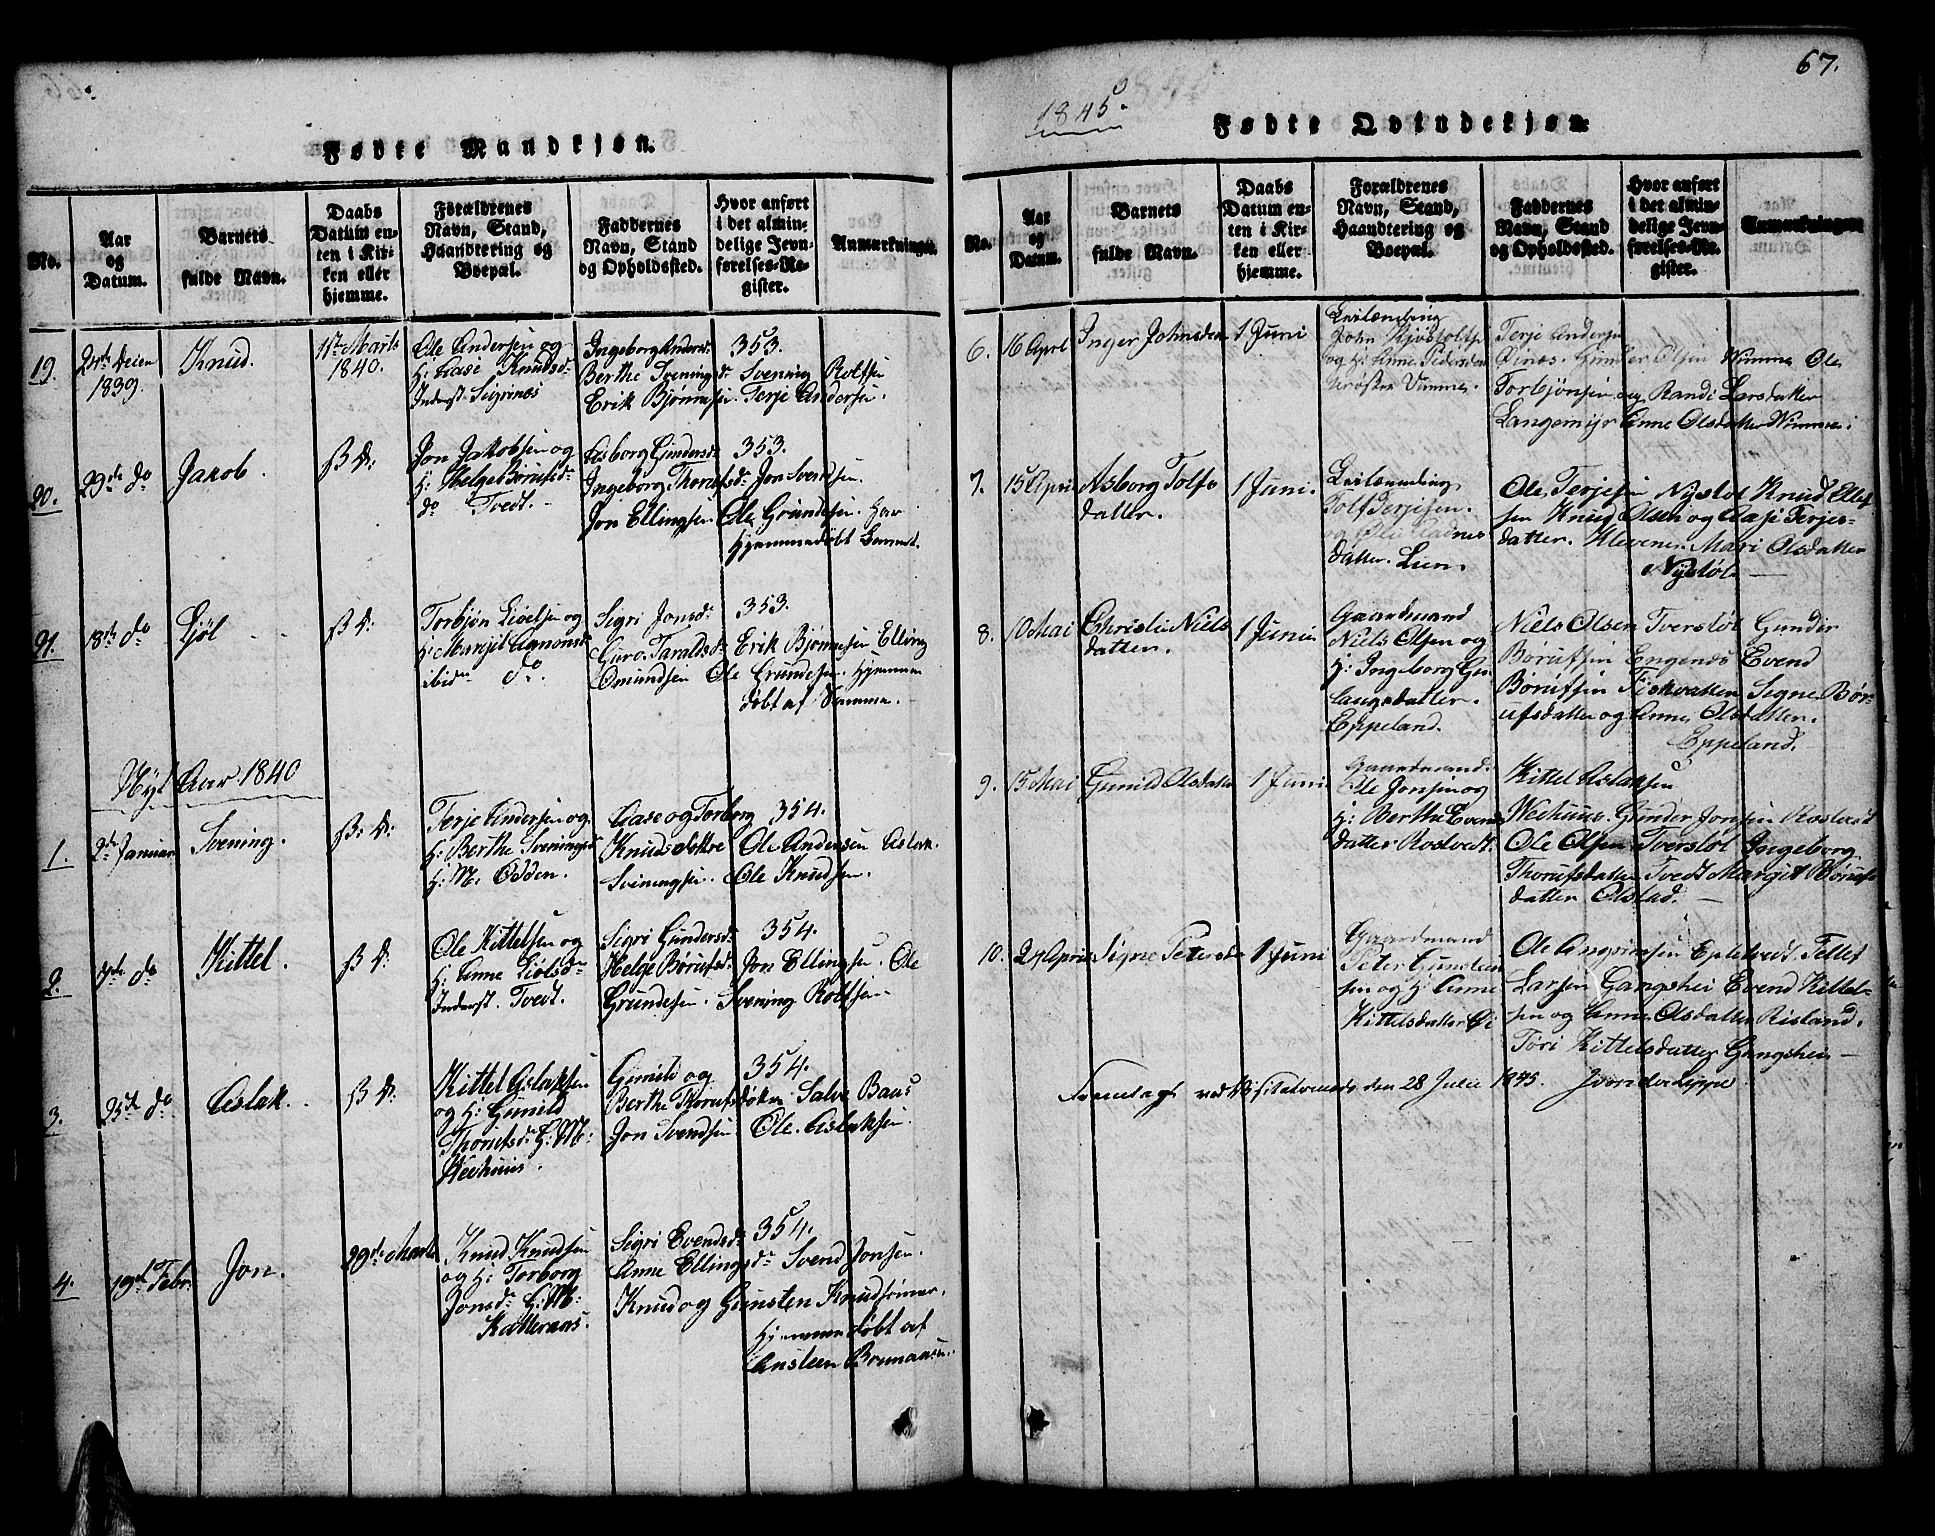 Fødte Mandkjøn.
No.
Aar
og
Datum.
Barnets
fulde Navn.
Daabs
Datum en-
ten i Kir-
ken eller
hjemme.
Forældrenes
Navn, Stand,
Haandtering og
Boepæl.
Faddernes
Navn, Stand
og Opholdssted.
Hvor anført
i det almin-
delige Jevn-
førelses-Re-
gister.
Anmærkninger.
19.
24de Decen
1839.
Knud.
11te Marts
1840.
Ole Andersen og
H: Aase Knudsdr
Inderst Sigrinæs
Ingeborg Andersdr 353.
Berthe Sveningsdr Svening Rolfsen
Erik Bjørnsen. Terje Andersen.
20.
29de do
Jakob.
S. D:
Jon Jakobsen og
H: Helge Børufsdr
do Tvedt.
Asborg Gundersdr 353.
Ingeborg Thorufsdr Jon Svendsen.
Jon Ellingsen Ole Grundesen. Har
Hjemmedøbt Barnet.
21.
18de do
Ljøl
S. D:
Torbjøn Liøelsen og
H: Margit Aanonsd
ibidm do.
Sigri Jonsdr 353.
Guro Taraldsdr Erik Bjørnsen Elling
Omundsen Ole Grundesen. Hjemme
døbt af Samme.
Nyt Aar 1840
1.
2de Januar
Svening.
S. D:
Terje Andersen og
H: Berthe Sveningsd
H: M. Odden.
Aase og Torborg 354.
Knudsdøttre Ole Andersen Aslak
Sveningsen. Ole Knudsen.
2.
7de do
Kittel.
S. D:
Ole Kittelsen og
H: Anne Liølsdr
Inderst. Tvedt.
Sigri Gundersdr 354.
Helge Børufsdr Jon Ellingsen. Ole
Grundesen. Svening Rolfsen.
3.
25de do
Aslak.
S. D:
Kittel Aslaksen
og H: Gunild
Thorufsdr G: M:
Wehuus.
Gunild og 354.
Berthe Thorufsdøtre Salve Baas
Jon Svendsen Ole Aslaksen.
4.
19de Febr:
Jon.
29de Marts
Knud Knudsen
og H: Torborg
Jonsdr G: M:
Katteraas.
Sigri Evendsdr 354.
Anne Ellingsdr Svend Jonsen.
Knud og Gunsten Knudsønner.
Hjemmedøbt af
Ansteen Brunaasen.
67.
1845.
Fødte Qvindekjøn.
No.
Aar
og
Datum.
Barnets
fulde Navn.
Daabs
Datum en-
ten i Kir-
ken eller
hjemme.
Forældrenes
Navn, Stand,
Haandtering og
Boepæl.
Faddernes
Navn, Stand
og Opholdssted.
Hvor anført
i det almin-
delige Jevn-
førelses-Re-
gister.
Anmærkninger.
6.
16 Aprl
Inger Johnsdr
1 Juni
Leilænding
John
og H: Anne Pedersdr
Vimme.
Terje Andersen
Øinæs. Gunder Olsen Vimme Ole
Torbjønsen og Randi Larsdatter
Langemyr Anne Olsdatter Vimme.
7.
15 April
Asborg Tolfs
datter.
1 Juni.
Leilænding
Tolf Terjesen.
og Øli Aadnes
datter. Lien.
Ole Terjesen Nystøl Knud Ellef
sen Knud Olsen og Aase Terjes-
datter. Klevene. Mari Olsdatter
Nystøl. —
8.
10 Mai
Christi Niels
datter.
1 Juni
Gaardmand
Niels Olsen og
H: Ingeborg Gun
laugsdatter.
Eppeland.
Niels Olsen Tverstøl Gunder
Børufsen Engenes Evend
Børufsen Fiskvatten Signe Bør-
ufsdatter og Anne Olsdatter.
Eppeland.
9.
15 Mai
Gunild Olsdatter
1 Juni
Gaardmand.
Ole Jonsen og
H: Berthe Evens
datter Rosvedt.
Kittel Aslaksen
Wehuus. Gunder Jonsen Rosvedt
Ole Olsen Tverstøl Ingeborg
Thorufsdatter Tvedt Margit Børufs
datter Olstad. —
10.
24 April
Signe Petersdr
1 Juni
Gaardmand
Peter Gunsteen
sen og H: Anne
Kittelsdatter Øi
Ole Angrimsen Eplstvedt Tellef
Larsen Gangshei Evend Kittel-
sen og Anne Olsdatter Risland.
Tori Kittelsdatter Gangshei —
Fremlagt ved Visitatsen den 28 Julii 1845.